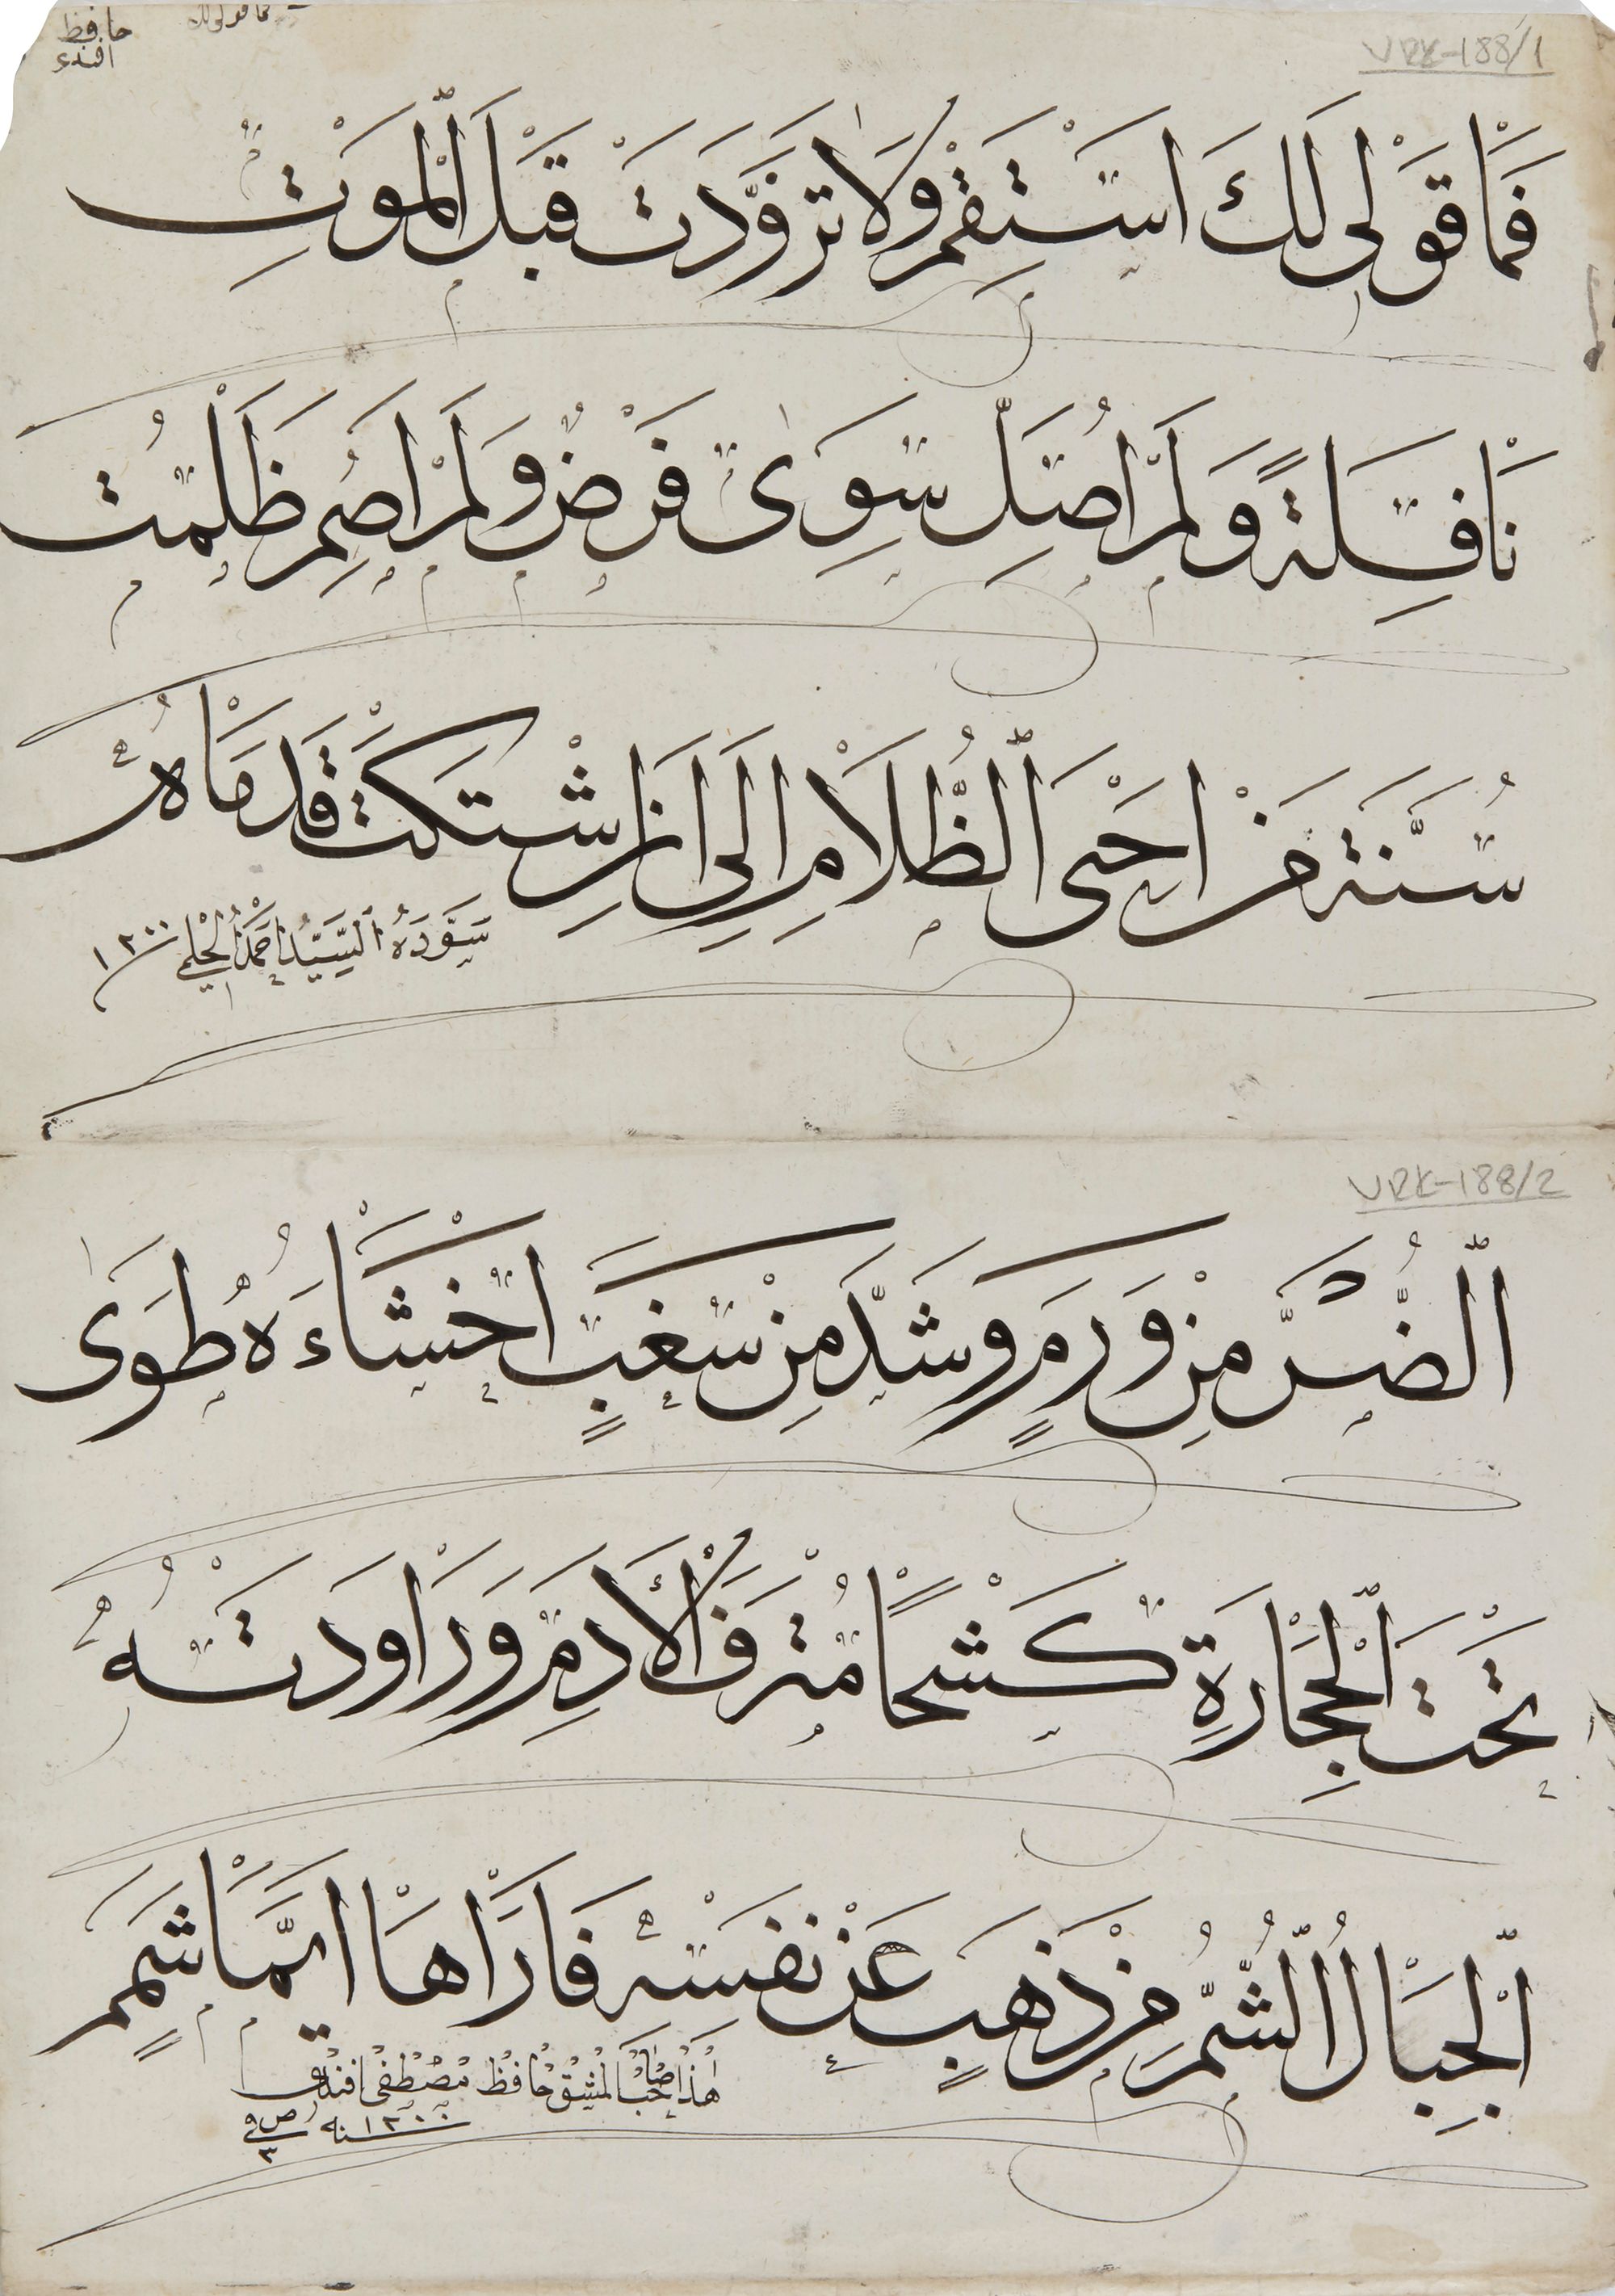 حافظ
افندی
فما قولی لك
VRK-188/1
فَمَا قَوْلِى لَكَ اسْتَقِمِ وَلَا تَزَوَّدْتُ قَبْلَ الْمَوْتِ
نَافِلَةً وَلَمْ اُصَلِّ سِوٰى فَرْضٍ وَلَمْ اَصُمِ ظَلَمْتُ
سُنَّةَ مَنْ اَحْيَى الظَّلَامَ اِلَى اَنِ اشْتَكَتْ قَدَمَاهُ
سَوَّدَهُ السَّيِّدُ اَحْمَدُ الْحِلْمِى ١٣٠٠
VRK-188/2
الضُّرَّ مِنْ وَرَمٍ وَشَدَّ مِنْ سَغَبٍ اَحْشَاءَهُ وَطَوٰى
تَحْتَ الْحِجَارَةِ كَشْحًا مُتْرَفَ الْاَدَمِ وَرَاوَدَتْهُ
الْجِبَالُ الشُّمُّ مِنْ ذَهَبٍ عَنْ نَفْسِهِ فَاَرَاهَا اَيَّمَا شَمَمٍ
هٰذَا صَاحِبُ الْمَشْقْ حَافِظْ مُصْطَفٰى اَفَنْدِى
سنه ١٣٠٠